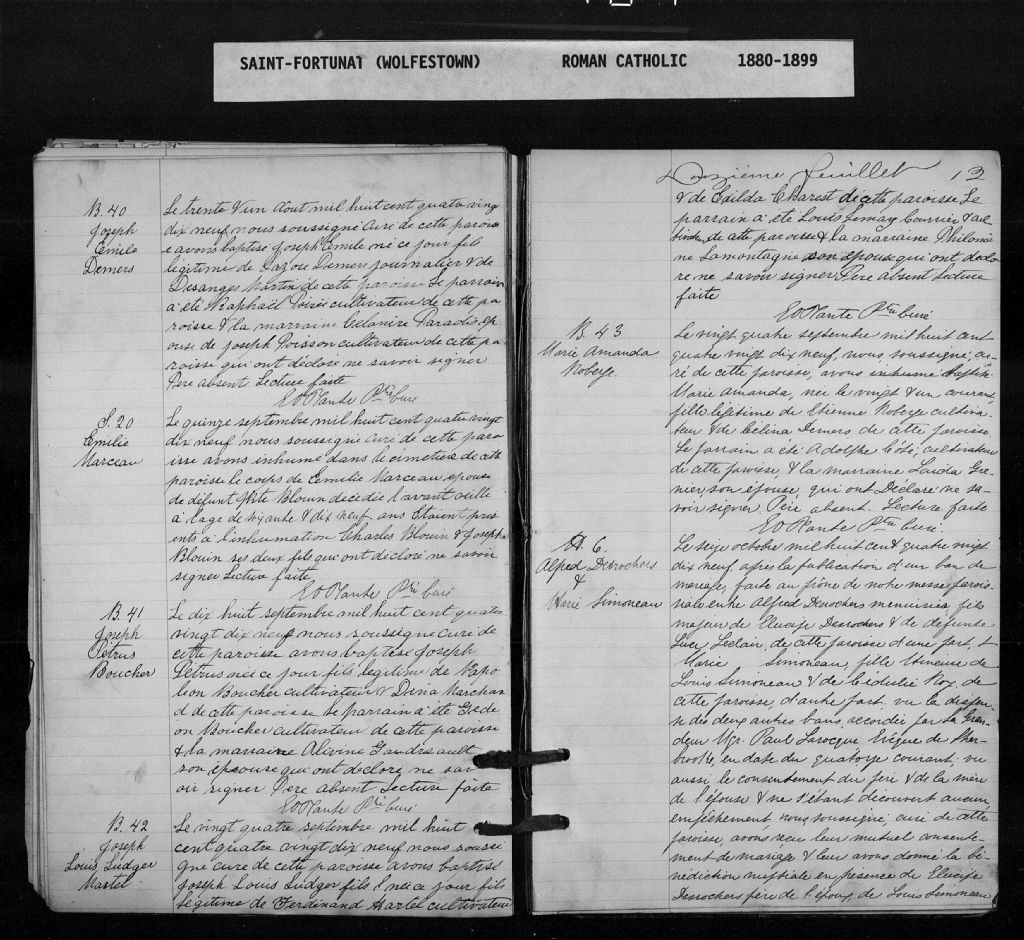 SAINT-FORTUNAT (WOLFESTOWN) ROMAN CATHOLIC 1880-1899
B. 40
Joseph
Emile
Demers
Le trente & un Aout mil huit cent quatre vingt
dix neuf nous soussigné Curé de cette parois
se avons baptisé Joseph Emile né ce jour fils
légitime de Demers journalier & de
Desanges Martin de cette paroisse Le parrain
a été Raphaël cultivateur de cette pa
roisse & la marraine Célanire Paradis ép
ouse de Joseph Poisson cultivateur de cette pa
roisse qui ont déclaré ne savoir signer
Père absent Lecture faite
Plante Ptre curé
S. 20
Emilie
Marceau
Le quinze septembre mil huit cent quatre vingt
dix neuf nous soussigné curé de cette paro
isse avons inhumé dans le cimetière de cette
paroisse le corps de Emilie Marceau épouse
de défunt Blouin décédée l'avant veille
à l'age de soixante & dix neuf ans Etaient pres
ents à l'inhumation Charles Blouin & Joseph
Blouin ses deux fils qui ont déclaré ne savoir
signer Lecture faite
Plante Ptre curé
B. 41
Joseph
Pétrus
Boucher
Le dix huit septembre mil huit cent quatre
vingt dix neuf nous soussigné curé de
cette paroisse avons baptisé Joseph
Pétrus né ce jour fils légitime de Napo
léon Boucher cultivateur & Marchan
d de cette paroisse Le parrain a été Gédé
on Boucher cultivateur de cette paroisse
& la marraine Alivine Gaudreault
son épouse qui ont déclaré ne sav
oir signer Père absent Lecture faite
Plante Ptre curé
B. 42
Joseph
Louis Ludger
Martel
Le vingt quatre septembre mil huit
cent quatre vingt dix neuf nous soussi
gné curé de cette paroisse avons baptisé
Joseph Louis Ludger fils né ce jour fils
légitime de Ferdinand Martel cultivateur
Douzième feuillet 12
& de Exilda Charest de cette paroisse Le
parrain a été Louis Lemay
de cette paroisse & la marraine Philomè
ne Lamontagne son épouse qui ont décla
ré ne savoir signer Père absent Lecture
faite
Plante Ptre curé
B. 43
Marie Amanda
Roberge
Le vingt quatre septembre mil huit cent
quatre vingt dix neuf, nous, soussigné, cu-
ré de cette paroisse, avons inhumé baptisé
Marie Amanda, née le vingt & un courant,
fille légitime de Etienne Roberge cultiva-
teur & de Célina Demers de cette paroisse
Le parrain a été Adolphe Côté, cultivateur
de cette paroisse, & la marraine Gre-
nier, son épouse, qui ont déclaré ne sa-
voir signer. Père absent. Lecture faite
Plante Ptre curé
M. 6.
Alfred Desrochers
&
Marie Simoneau
Le seize octobre mil huit cent quatre vingt
dix neuf, après la publication d'un ban de
mariage, faite au prône de notre messe parois-
siale entre Alfred Desrochers menuisier, fils
majeur de Elucipe Desrochers & de défunte
Luce Leclair, de cette paroisse d'une part, &
Marie Simoneau, fille mineure de
Louis Simoneau & de Cédulie Roy, de
cette paroisse, d'autre part, vu la dispen-
se des deux autres bans, accordée par Sa Gran-
deur Mgr. Paul Larocque Evêque de Sher-
brooke, en date du quatorze courant; vu
aussi le consentement du père & de la mère
de l'épouse & ne s'étant découvert aucun
empêchement, nous, soussigné, curé de cette
paroisse, avons reçu leur mutuel consente-
ment de mariage & leur avons donné la bé-
nédiction nuptiale en présence de Elucipe
Desrochers père de l'époux, de Louis Simoneau